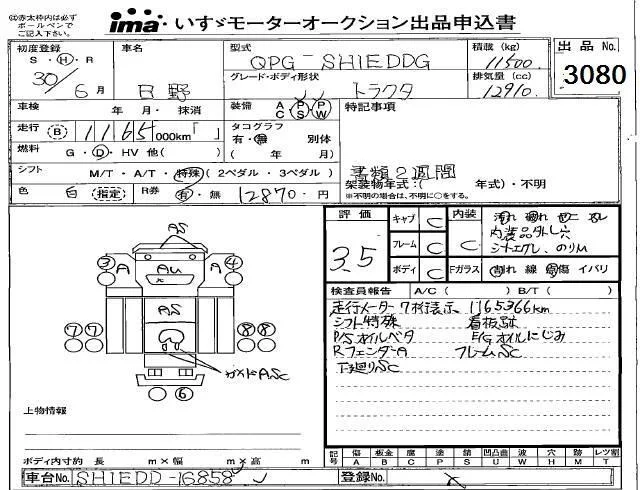 ◎太赤枠内は必ず
ボールペンで
ご記入下さい。
ima・いすゞモーターオークション出品申込書
初度登録 車名 型式 QPG-SH1EDDG 積載(kg) 11500 出品No.
S・H・R 30/6月 日野 グレード・ボディ形状 トラクタ 排気量(cc) 12910 3080
車検 年 月・ 抹消 装備 AC PS PW 特記事項
走行 (B) 1165 000km「 」 タコグラフ 有・無 別体
燃料 G・D・HV 他( ) ( 年 月)
シフト M/T・A/T・特殊(2ペダル・3ペダル) 書類2週間
架装物年式:( 年式)・不明
※不明の場合は、不明に○をする。
色 白 (指定) R券 有・無 12870円
評価 3.5 キャブ C 内装 C
フレーム C 内装品外し穴
ボディ C Fガラス 割れ 線 傷 イバリ
検査員報告 A/C( ) B/T( )
走行メーター7桁表示 1165366km
シフト特殊 看板跡
P/Sオイルベタ E/Gオイルにじみ
RフェンダーA フレームSC
下廻りSC
AS
③ A AU A ④
AS
⑦⑦ ⑧⑧
ガメドASC
⑥
上物情報
ボディ内寸約 長 m×幅 m×高 m
記号 傷 板金 腐 塗 錆 凹凸曲 波 穴 跡 レツ割
A B C P S U W H M T
車台No. SH1EDD-16858 登録No.